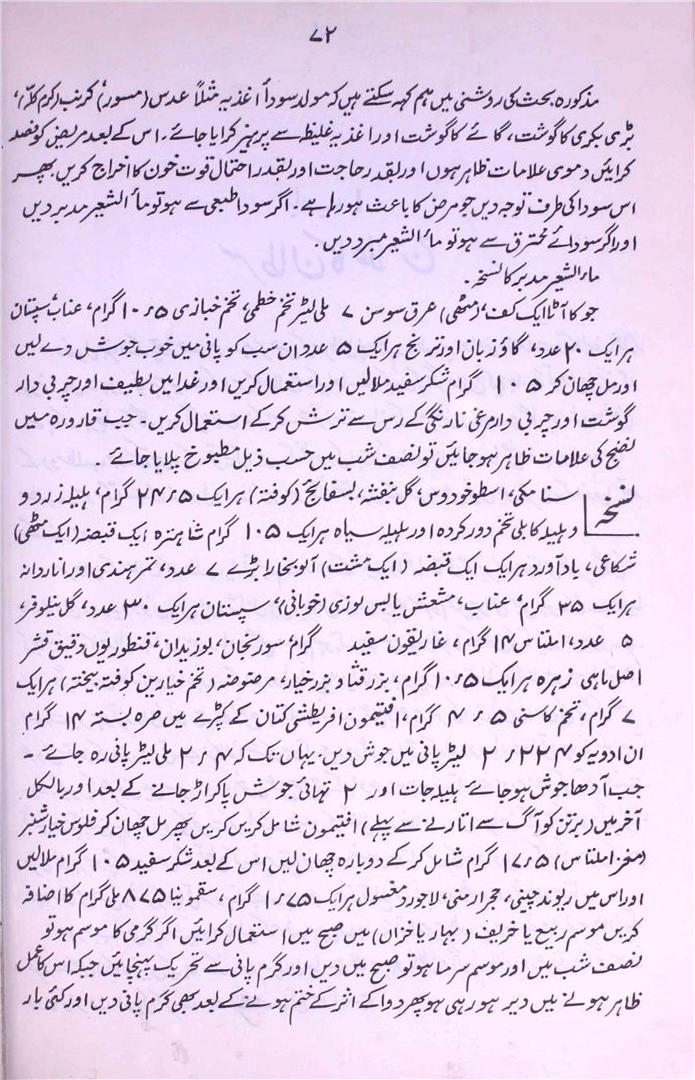 ۷۲
مذکورہ بحث کی روشنی میں ہم کہہ سکتے ہیں کہ مولد سودأ اغذیہ مثلاً عدس (مسور) کرنب (کرم کلہ)،
بڑی بکری کا گوشت، گائے کا گوشت اور اغذیہ غلیظہ سے پرہیز کرایا جائے۔ اس کے بعد مریض کو فصد
کرائیں دموی علامات ظاہر ہوں اور بقدر حاجت اور بقدر احتمال قوت خون کا اخراج کریں پھر
اس سودا کی طرف توجہ دیں جو مرض کا باعث ہو رہا ہے۔ اگر سودا طبیعی سے ہو تو مأ الشعیر مدبر دیں
اور اگر سودائے محترق سے ہو تو مأ الشعیر مبرد دیں۔
ماء الشعیر مدبر کا نسخہ۔
جو کا آٹا ایک کف، (مٹھی) عرق سوسن ۷ ملی لیٹر تخم خطمی، تخم خبازی ۱۰٫۵ گرام، عناب، سپستان
ہر ایک ۲۰ عدد، گاؤ زبان اور ترنج ہر ایک ۵ عدد ان سب کو پانی میں خوب جوش دے لیں
اور مل چھان کر ۱۰۵ گرام شکر سفید ملا لیں اور استعمال کریں اور غدا میں لطیف اور چربی دار
گوشت اور چربی دار مرغی نارنگی کے رس سے ترش کر کے استعمال کریں۔ جب قارورہ میں
نضج کی علامات ظاہر ہو جائیں تو نصف شب میں حسب ذیل مطبوخ پلایا جائے۔
نسخہ سنا مکی، اسطوخودوس، گل بنفشہ، بسفائج (کوفتہ) ہر ایک ۲۴٫۵ گرام، ہلیلہ زرد و
و ہلیلہ کابلی تخم دور کردہ اور ہلیلہ سیاہ ہر ایک ۱۰۵ گرام شاہترہ ایک قبضہ (ایک مٹھی)
شکاعی، بادآورد ہر ایک ایک قبضہ (ایک مشت) آلو بخارا بڑے ۷ عدد، تمر ہندی اور انار دانہ
ہر ایک ۳۵ گرام، عناب، مشمش یابس لوزی (خوبانی)، سپستان ہر ایک ۳۰ عدد، گل نیلوفر،
۵ عدد، املتاس ۱۴ گرام، غاریقون سفید گرام، سورنجان، بوزیدان، قنطوریوں دقیق قشر
اصل ماہی زہرہ ہر ایک ۱۰٫۵ گرام، بزر قثا و بزر خیار، مرضوضہ (تخم خیارین کوفتہ بیختہ) ہر ایک
۷ گرام، تخم کاسنی ۴٫۵ گرام، افتیمون افریطشی کتان کے کپڑے میں صرہ بستہ ۱۴ گرام
ان ادویہ کو ۲٫۲۲۴ لیٹر پانی میں جوش دیں۔ یہاں تک کہ ۲٫۴ ملی لیٹر پانی رہ جائے۔
جب آدھا جوش ہو جائے ہلیلہ جات اور ۲ تہائی جوش پاکر اڑ جانے کے بعد اور بالکل
آخر میں (برتن کو آگ سے اتارنے سے پہلے) افتیمون شامل کریں کریں پھر مل چھان کر فلوس خیار شنبر
(مغز املتاس) ۱۷٫۵ گرام شامل کر کے دوبارہ چھان لیں اس کے بعد شکر سفید ۱۰۵ گرام ملا لیں
اور اس میں ریوند چینی، حجر ارمنی، لاجورد مغسول ہر ایک ۱٫۷۵ گرام، سقمونیا ۸۷۵ ملی گرام کا اضافہ
کریں موسم ربیع یا خریف (بہار یا خزاں) میں صبح میں استعمال کرائیں اگر گرمی کا موسم ہو تو
نصف شب میں اور موسم سرما ہو تو صبح میں دیں اور گرم پانی سے تحریک پہنچائیں جبکہ اس کا عمل
ظاہر ہونے میں دیر ہو رہی ہو پھر دوا کے اثر کے ختم ہونے کے بعد بھی گرم پانی دیں اور کئی بار